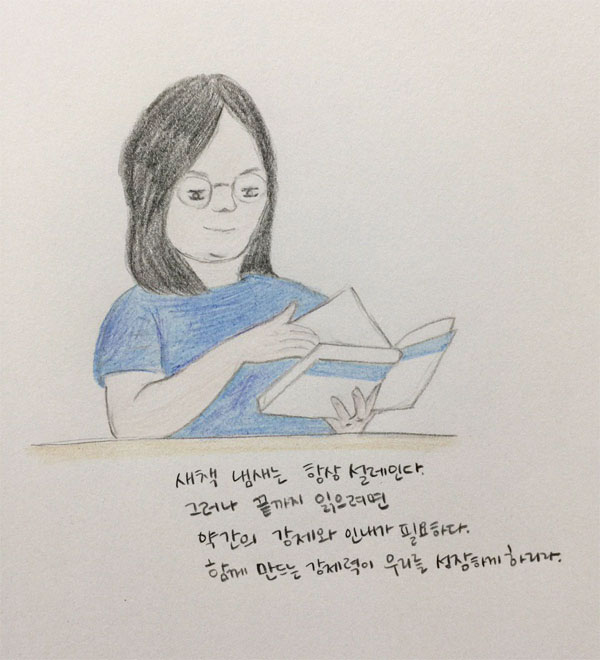 새책 냄새는 항상 설레인다.
그러나 끝까지 읽으려면
약간의 강제와 인내가 필요하다.
함께 만드는 강제력이 우리를 성장하게 하리라.